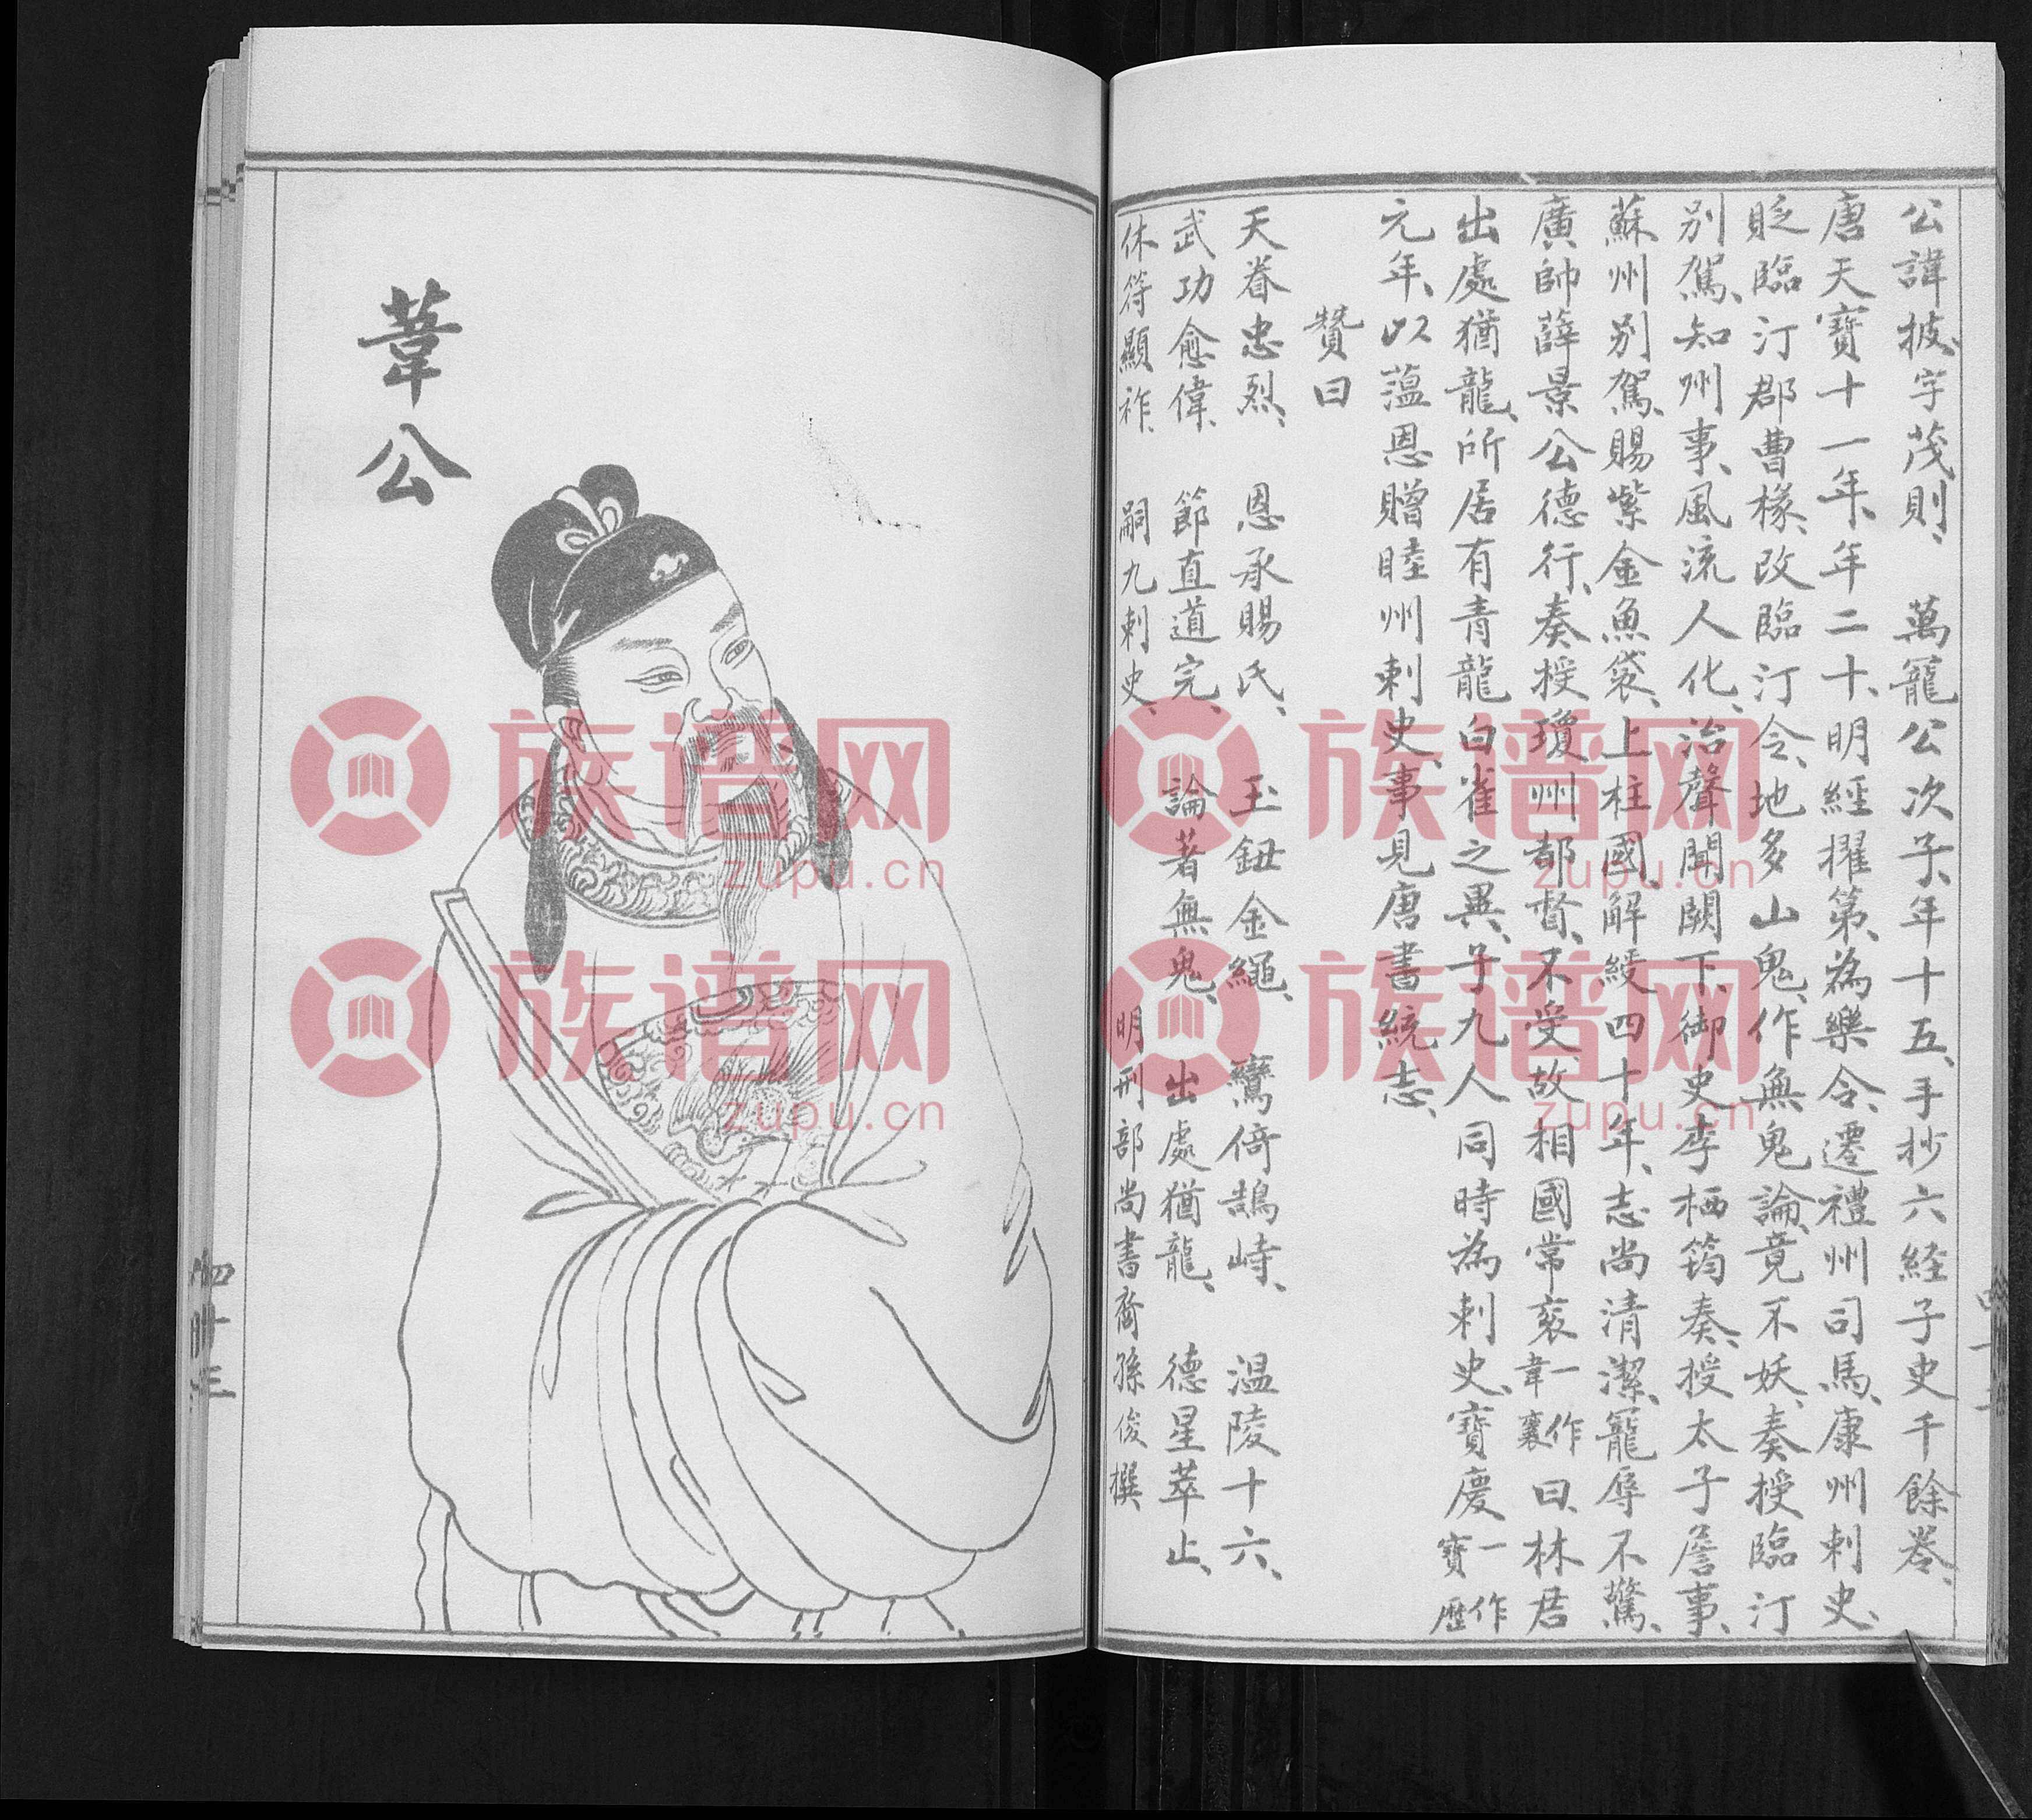 公諱披、字茂則、萬寵公次子、年十五、手抄六経子史千餘卷、
唐天寶十一年、年二十、明經擢第、為樂令、遷禮州司馬、康州刺史、
貶臨汀郡曹椽、改臨汀令、地多山鬼、作無鬼論、竟不妖、奏授臨汀
别駕、知州事、風流人化、治聲聞闕下、御史李栖筠奏、授太子詹事、
蘇州别駕、賜紫金魚袋、上柱國、解綬四十年、志尚清潔、寵辱不驚、
廣帥薛景公德行、奏授瓊州都督、不受、故相國常衮一作韋襄曰、林君
出處猶龍、所居有青龍白雀之異、子九人同時為刺史、寶慶一作寶歷
元年、以薀恩贈睦州刺史、事見唐書統志、
贊曰
天眷忠烈、恩承賜氏、玉鈕金繩、鸞倚鵠峙、温陵十六、
武功愈偉、節直道完、論著無鬼、出處猶龍、德星萃止、
休符顯祚、嗣九刺史、明刑部尚書裔孫俊撰
葦公
四十三
族谱网
zupu.cn
族谱网
zupu.cn
族谱网
zupu.cn
族谱网
zupu.cn